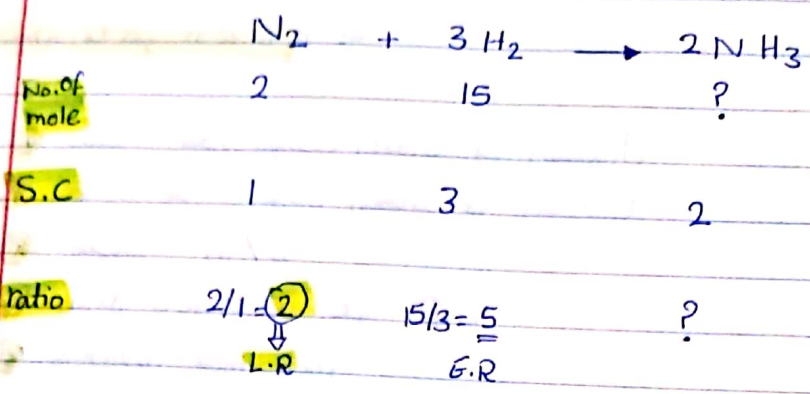 N₂ + 3 H₂ → 2 N H₃
No. of mole 2 15 ?
S.C 1 3 2
ratio 2/1 = 2 15/3 = 5 ?
L.R E.R